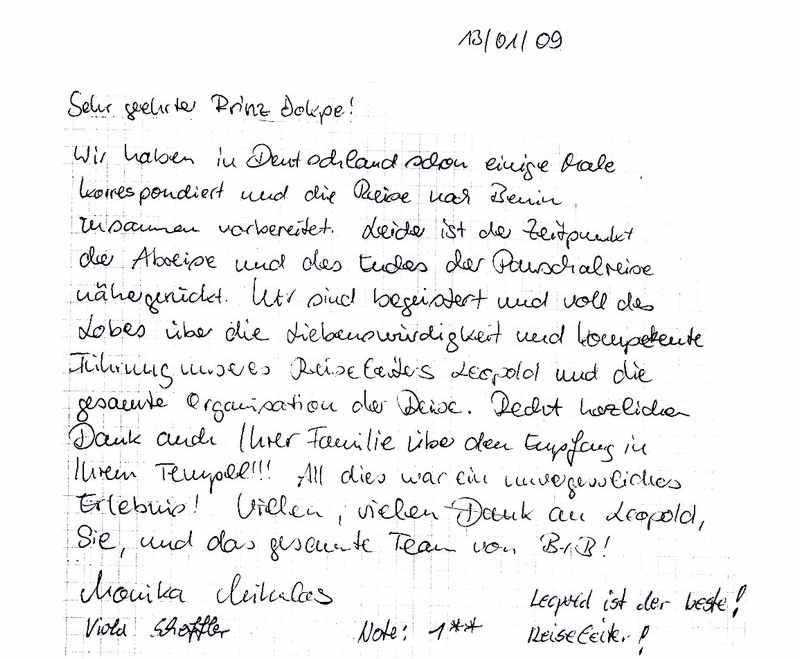 13/01/09
Sehr geehrter Prinz Dokpe!
Wir haben in Deutschland schon einige Male
korrespondiert und die Reise nach Benin
zusammen vorbereitet. Leider ist der Zeitpunkt
der Abreise und des Endes der Pauschalreise
nähergerückt. Wir sind begeistert und voll des
Lobes über die Liebenswürdigkeit und kompetente
Führung unseres Reiseleiters Leopold und die
gesamte Organisation der Reise. Recht herzlichen
Dank auch Ihrer Familie über den Empfang in
Ihrem Tempel!!! All dies war ein unvergessliches
Erlebnis! Vielen, vielen Dank an Leopold,
Sie, und das gesamte Team von !
Monika
Viola
Note: 1**
Leopold ist der beste!
Reiseleiter!